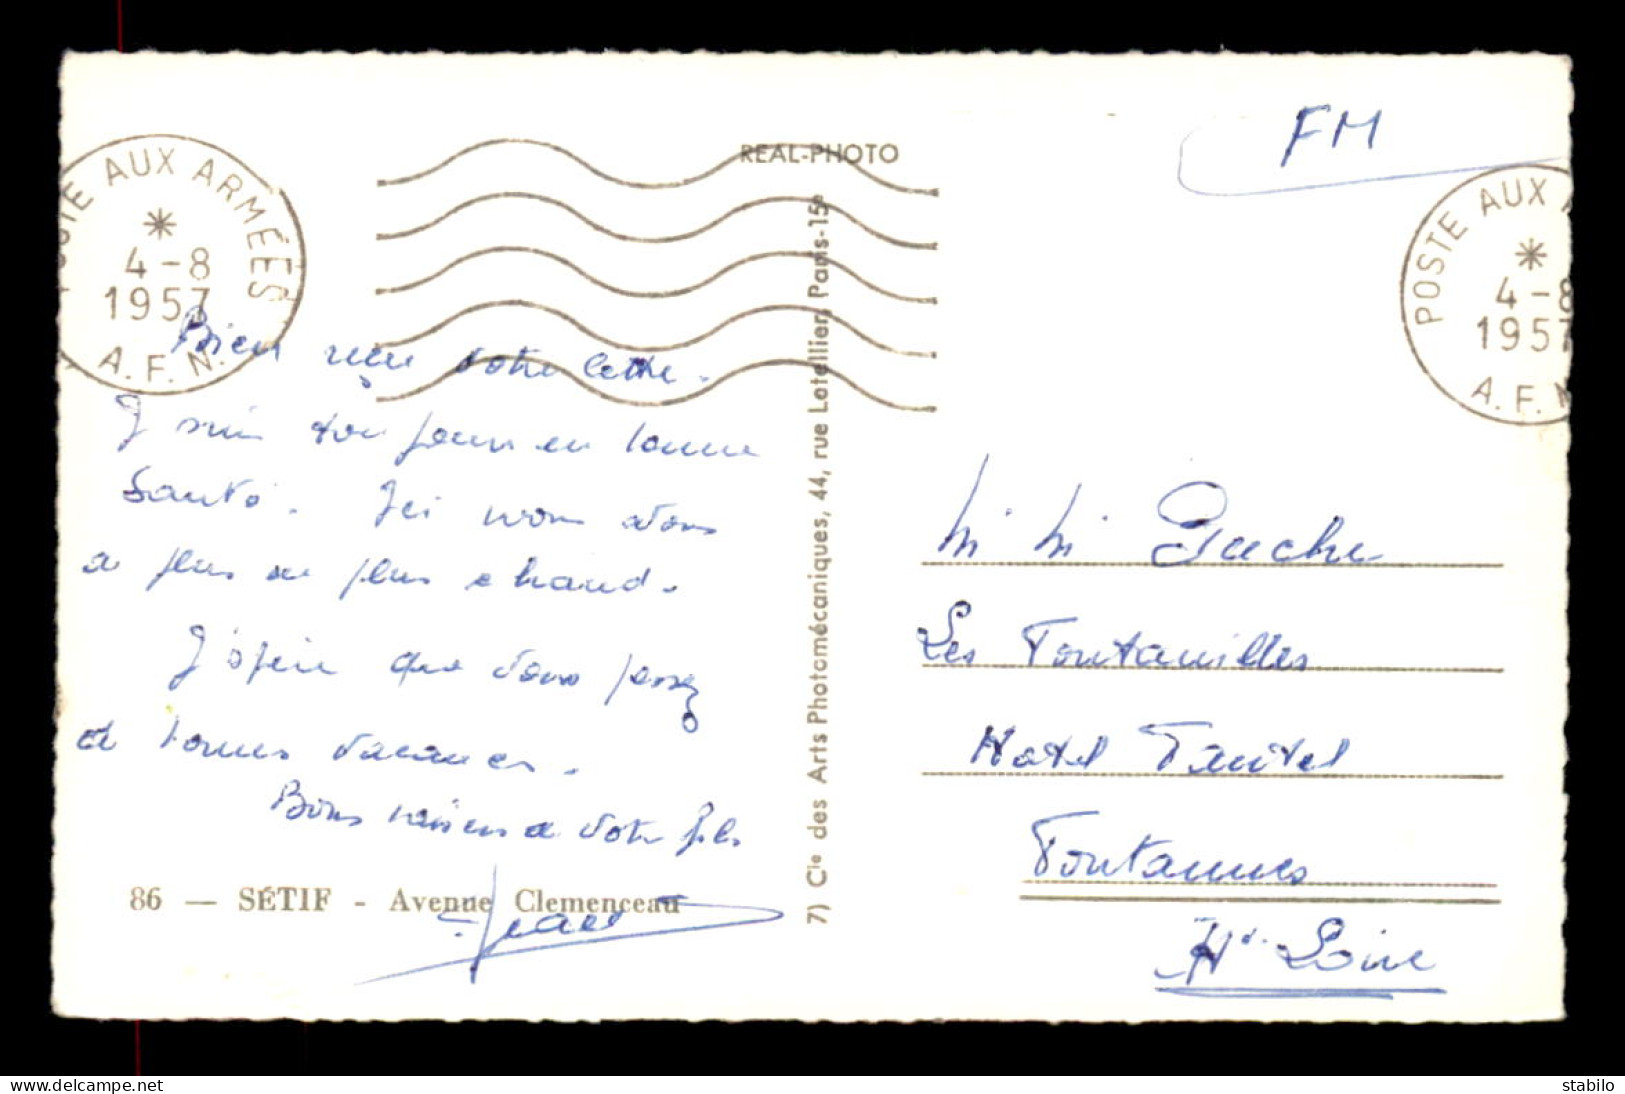 POSTE AUX ARMÉES
4-8
1957
A.F.N.
REAL-PHOTO
FM
POSTE AUX A
4-8
1957
A.F.N
Bien reçu votre lettre.
J suis toujours en bonne
Santé. Ici nous avons
de plus en plus chaud.
J'espère que vous passez
de bonnes vacances.
Bons baisers de votre fils
Jean
86 — SÉTIF - Avenue Clemenceau
7) Cie des Arts Photomécaniques, 44, rue Letellier, Paris-15e
Gache
Les Fontanilles
Hotel
Fontannes
Hte Loire
www.delcampe.net
stabilo